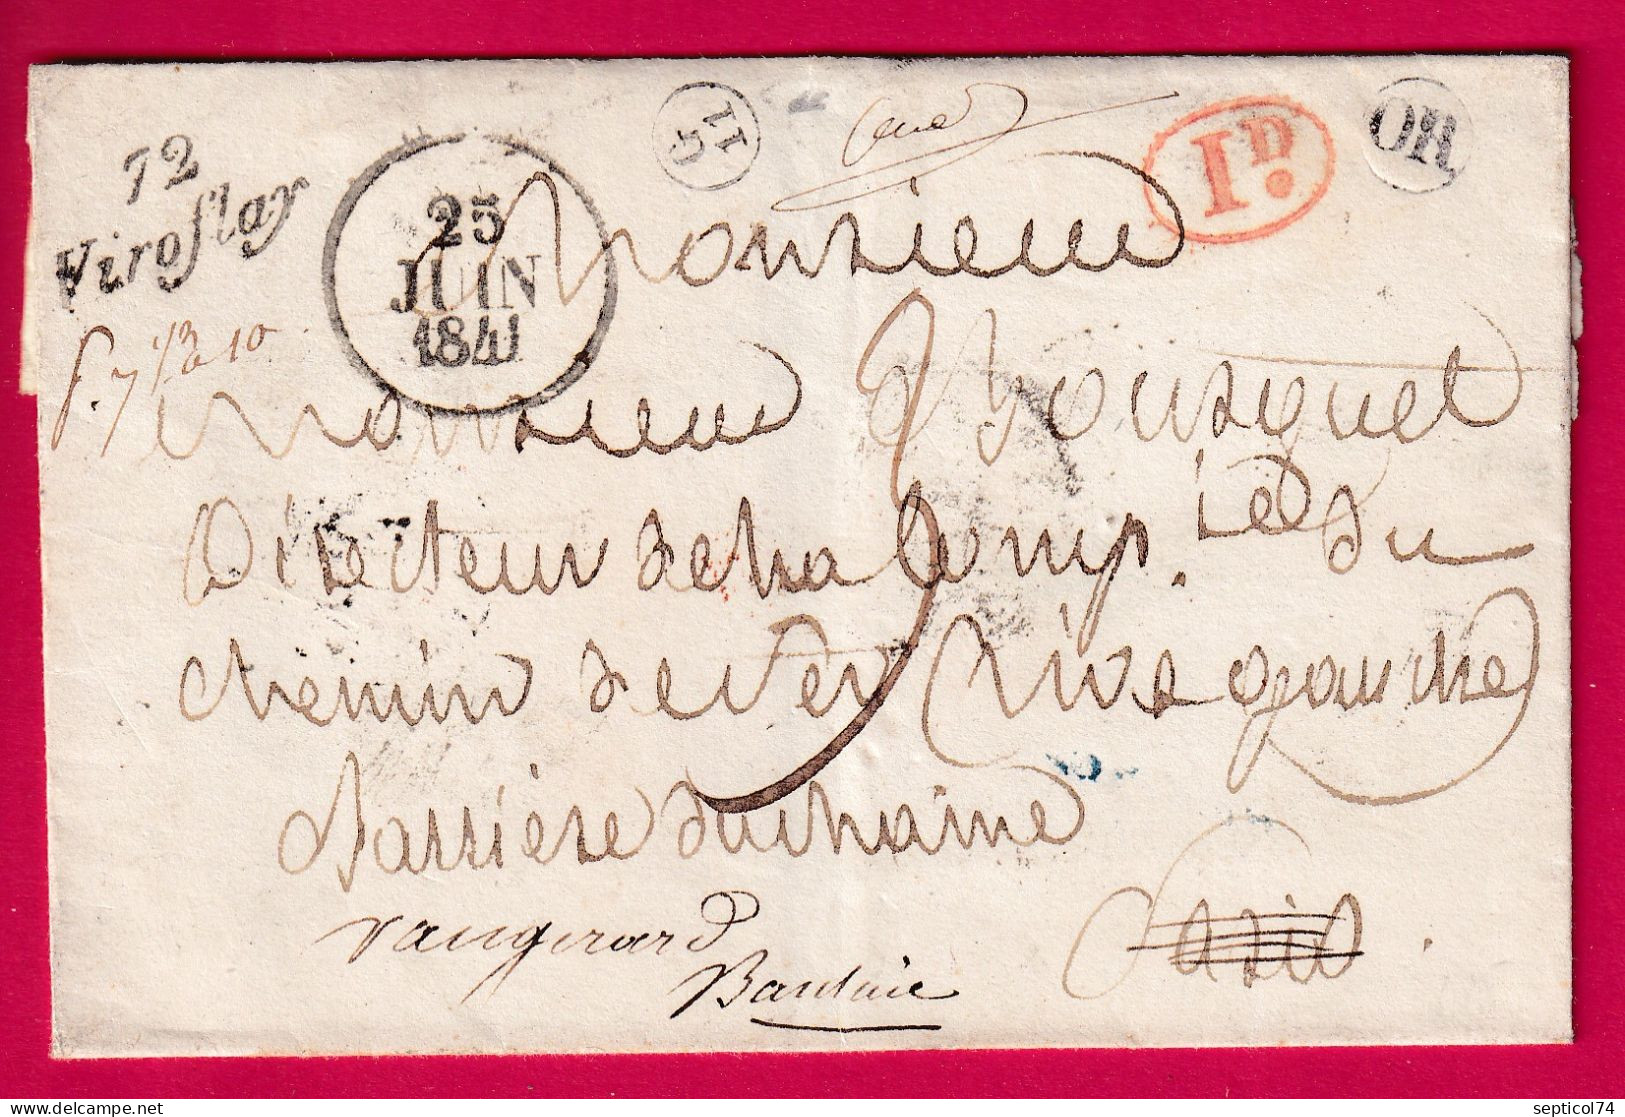 72
Viroflay
25
JUIN
1841
11
G
1D.
OR
Monsieur
Monsieur Bousquet
Directeur de la Comp.ie du
chemin de fer rive gauche
Barrière du maine
Paris.
Vaugirard
Banlieue
septicol74